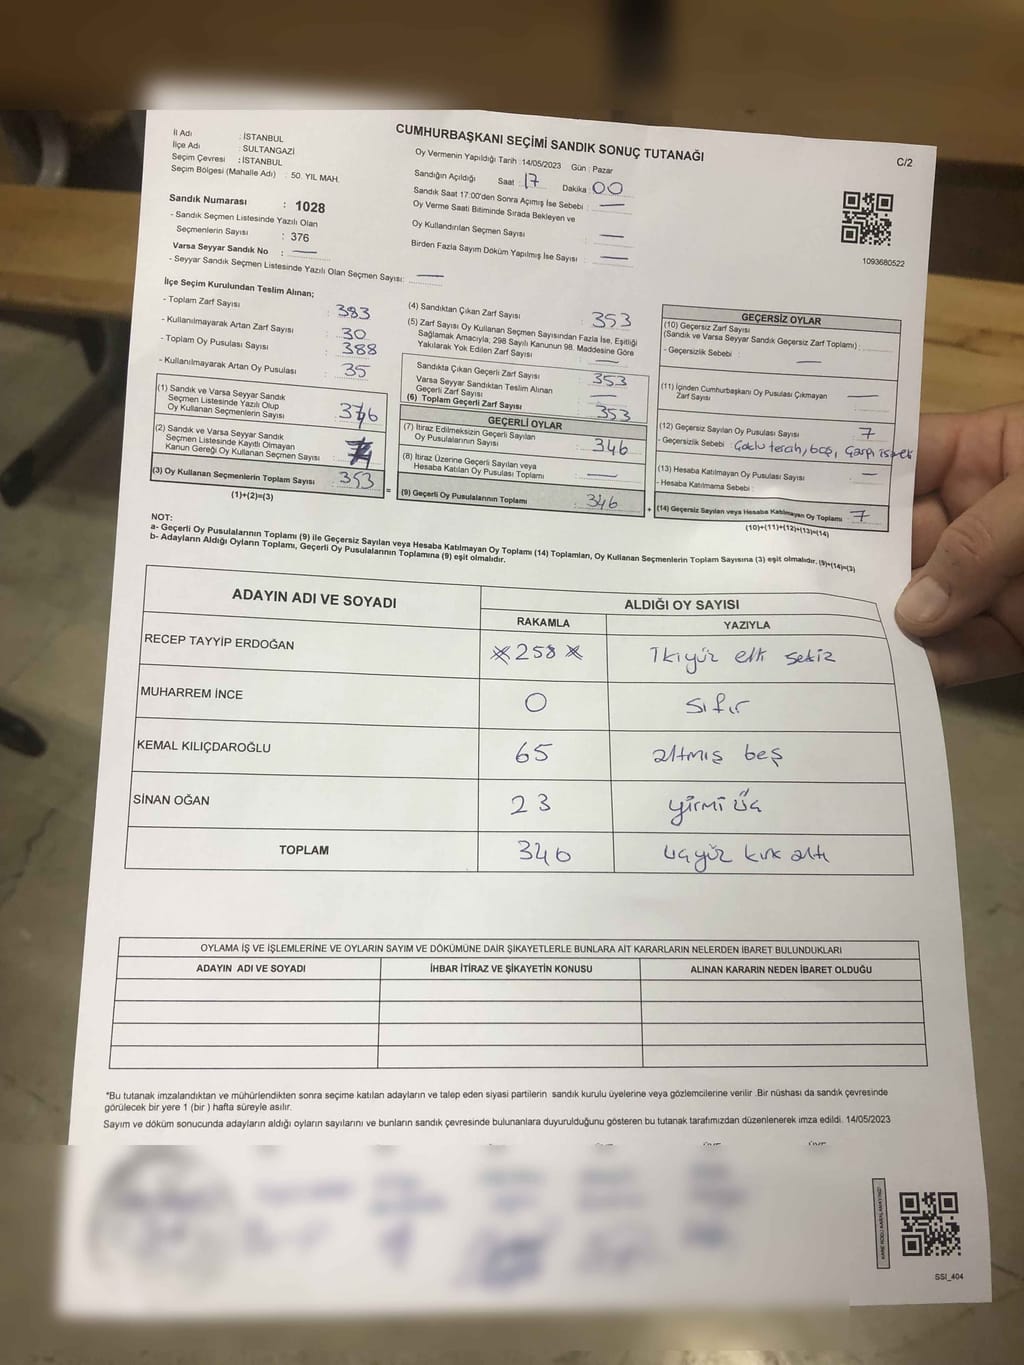 CUMHURBAŞKANI SEÇİMİ SANDIK SONUÇ TUTANAĞI
C/2
İl Adı : İSTANBUL
İlçe Adı : SULTANGAZİ
Seçim Çevresi : İSTANBUL
Seçim Bölgesi (Mahalle Adı) : 50. YIL MAH.
Sandık Numarası : 1028
- Sandık Seçmen Listesinde Yazılı Olan
Seçmenlerin Sayısı : 376
Varsa Seyyar Sandık No : —
- Seyyar Sandık Seçmen Listesinde Yazılı Olan Seçmen Sayısı: —
Oy Vermenin Yapıldığı Tarih :14/05/2023 Gün : Pazar
Sandığın Açıldığı Saat : 17 Dakika : 00
Sandık Saat 17:00'den Sonra Açımış İse Sebebi : —
Oy Verme Saati Bitiminde Sırada Bekleyen ve
Oy Kullandırılan Seçmen Sayısı : —
Birden Fazla Sayım Döküm Yapılmış İse Sayısı : —
1093680522
İlçe Seçim Kurulundan Teslim Alınan;
- Toplam Zarf Sayısı : 383
- Kullanılmayarak Artan Zarf Sayısı : 30
- Toplam Oy Pusulası Sayısı : 388
- Kullanılmayarak Artan Oy Pusulası : 35
(1) Sandık ve Varsa Seyyar Sandık
Seçmen Listesinde Yazılı Olup
Oy Kullanan Seçmenlerin Sayısı :
(2) Sandık ve Varsa Seyyar Sandık
Seçmen Listesinde Kayıtlı Olmayan
Kanun Gereği Oy Kullanan Seçmen Sayısı :
(3) Oy Kullanan Seçmenlerin Toplam Sayısı : 353
(1)+(2)=(3)
(4) Sandıktan Çıkan Zarf Sayısı : 353
(5) Zarf Sayısı Oy Kullanan Seçmen Sayısından Fazla İse, Eşitliği
Sağlamak Amacıyla, 298 Sayılı Kanunun 98. Maddesine Göre
Yakılarak Yok Edilen Zarf Sayısı : —
Sandıkta Çıkan Geçerli Zarf Sayısı : 353
Varsa Seyyar Sandıktan Teslim Alınan
Geçerli Zarf Sayısı : —
(6) Toplam Geçerli Zarf Sayısı : 353
GEÇERLİ OYLAR
(7) İtiraz Edilmeksizin Geçerli Sayılan
Oy Pusulalarının Sayısı : 346
(8) İtiraz Üzerine Geçerli Sayılan veya
Hesaba Katılan Oy Pusulası Toplamı : —
= (9) Geçerli Oy Pusulalarının Toplamı : 346 +
GEÇERSİZ OYLAR
(10) Geçersiz Zarf Sayısı
(Sandık ve Varsa Seyyar Sandık Geçersiz Zarf Toplamı) :
- Geçersizlik Sebebi : —
(11) İçinden Cumhurbaşkanı Oy Pusulası Çıkmayan
Zarf Sayısı : —
(12) Geçersiz Sayılan Oy Pusulası Sayısı : 7
- Geçersizlik Sebebi : Çoklu tercih, boş, Çarpı
(13) Hesaba Katılmayan Oy Pusulası Sayısı : —
- Hesaba Katılmama Sebebi :
(14) Geçersiz Sayılan veya Hesaba Katılmayan Oy Toplamı : 7
(10)+(11)+(12)+(13)=(14)
NOT:
a- Geçerli Oy Pusulalarının Toplamı (9) ile Geçersiz Sayılan veya Hesaba Katılmayan Oy Toplamı (14) Toplamları, Oy Kullanan Seçmenlerin Toplam Sayısına (3) eşit olmalıdır. (9)+(14)=(3)
b- Adayların Aldığı Oyların Toplamı, Geçerli Oy Pusulalarının Toplamına (9) eşit olmalıdır.
ADAYIN ADI VE SOYADI ALDIĞI OY SAYISI
RAKAMLA YAZIYLA
RECEP TAYYİP ERDOĞAN 258 İkiyüz elli sekiz
MUHARREM İNCE 0 sıfır
KEMAL KILIÇDAROĞLU 65 altmış beş
SİNAN OĞAN 23 yirmi üç
TOPLAM 346 üçyüz kırk altı
OYLAMA İŞ VE İŞLEMLERİNE VE OYLARIN SAYIM VE DÖKÜMÜNE DAİR ŞİKAYETLERLE BUNLARA AİT KARARLARIN NELERDEN İBARET BULUNDUKLARI
ADAYIN ADI VE SOYADI İHBAR İTİRAZ VE ŞİKAYETİN KONUSU ALINAN KARARIN NEDEN İBARET OLDUĞU
*Bu tutanak imzalandıktan ve mühürlendikten sonra seçime katılan adayların ve talep eden siyasi partilerin sandık kurulu üyelerine veya gözlemcilerine verilir. Bir nüshası da sandık çevresinde
görülecek bir yere 1 (bir ) hafta süreyle asılır.
Sayım ve döküm sonucunda adayların aldığı oyların sayılarını ve bunların sandık çevresinde bulunanlara duyurulduğunu gösteren bu tutanak tarafımızdan düzenlenerek imza edildi. 14/05/2023
SSİ_404